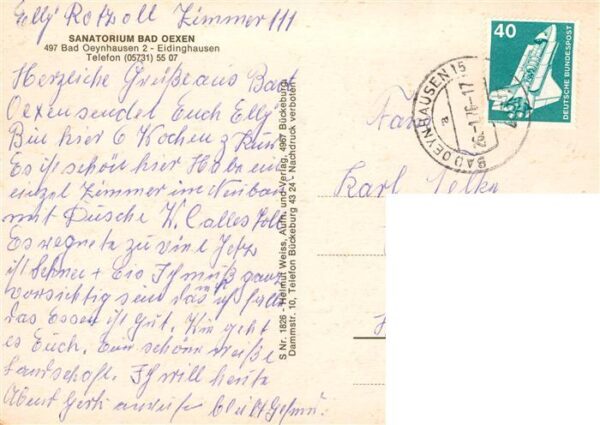 Elly Rotzoll Zimmer 111
SANATORIUM BAD OEXEN
497 Bad Oeynhausen 2 - Eidinghausen
Telefon (05731) 55 07
Herzliche Grüße aus Bad
Oexen sendet Euch Elly
Bin hier 6 Wochen z Kur
Es ist schön hier Habe ein
enzel Zimmer im Neubau
mit Dusche W.C alles toll
Es regnete zu viel Jetz
ist Schnee + Eis Ich muß ganz
vorsichtig sein das ich nicht falle
das Essen ist gut. Wie geht
es Euch. Eine schöne weiße
Landschaft. Ich will heute
Abend Gerti anrufen bleibt Gesund.
S Nr. 1826 - Helmut Weiss, Aufn. und Verlag, 4967 Bückeburg
Dammstr. 10, Telefon Bückeburg 43 24 - Nachdruck verboten!
40
DEUTSCHE BUNDESPOST
BAD OEYNHAUSEN 15
a
Fam
Karl